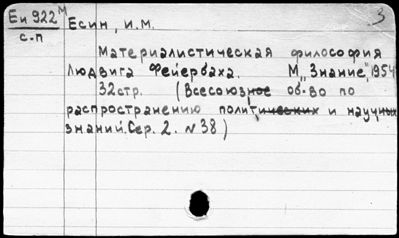 Еи 922м Есин, И.М. 3
с.-п
Материалистическая философия
Людвига Фейербаха. М., "Знание", 1954
32стр. (Всесоюзное об-во по
распространению политических и научных
знаний. Сер. 2. №38)